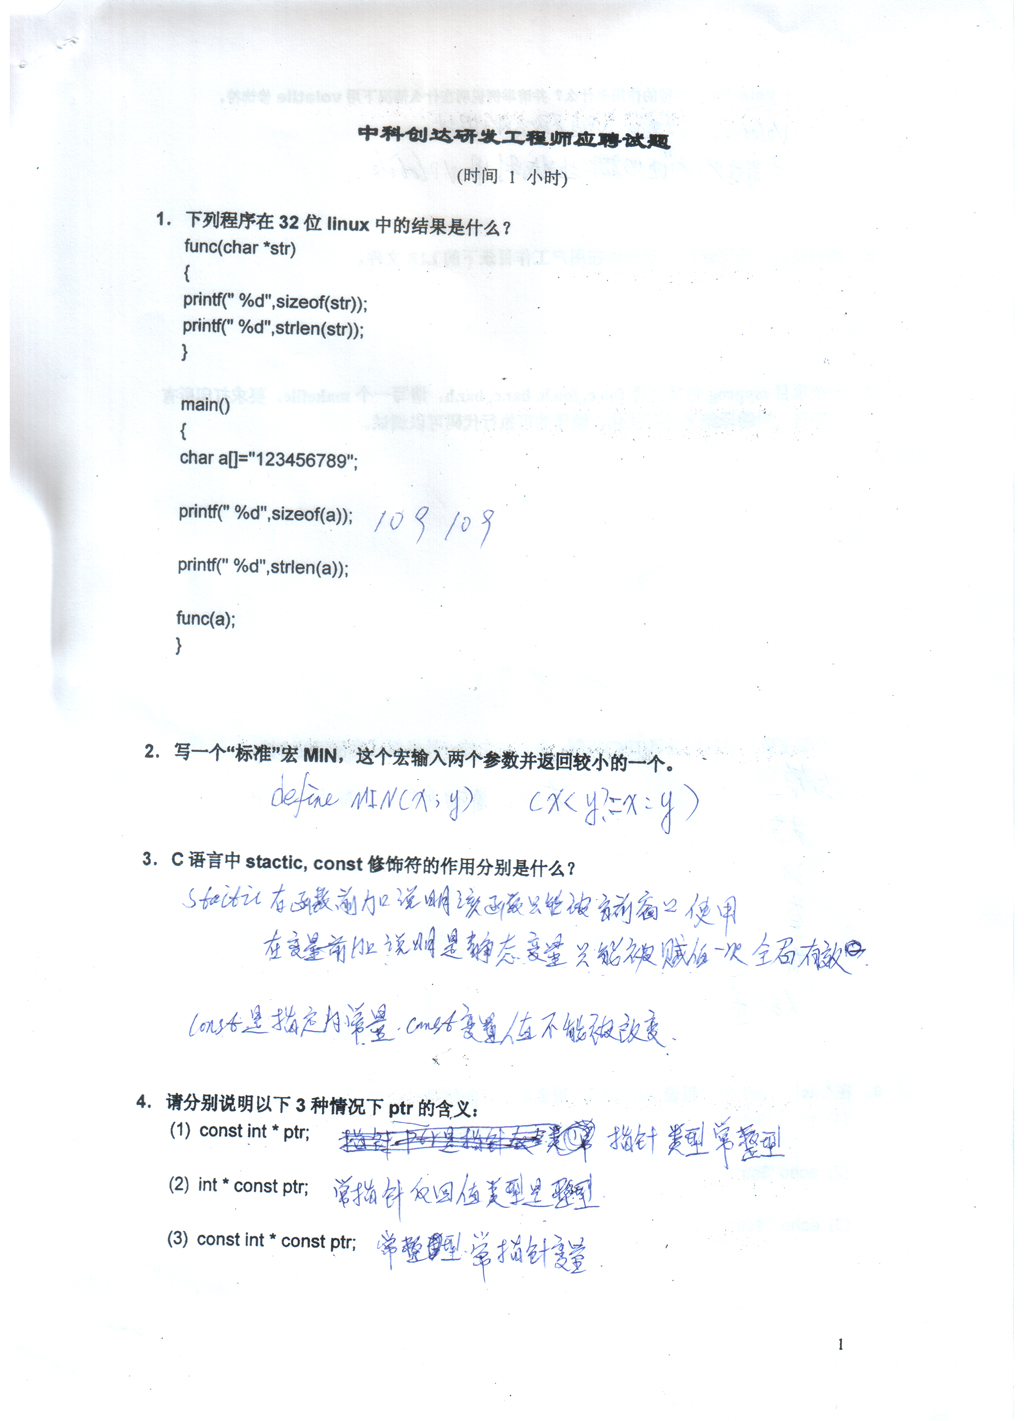 中科创达研发工程师应聘试题
(时间 1 小时)
1. 下列程序在 32 位 linux 中的结果是什么?
func(char *str)
{
printf(" %d",sizeof(str));
printf(" %d",strlen(str));
}
main()
{
char a[]="123456789";
printf(" %d",sizeof(a)); 109 109
printf(" %d",strlen(a));
func(a);
}
2. 写一个“标准”宏 MIN，这个宏输入两个参数并返回较小的一个。
define MIN(x,y) (x<y?=x:y)
3. C 语言中 stactic, const 修饰符的作用分别是什么?
static 在函数前加 说明该函数只能被当前窗口使用
在变量前加 说明是静态变量 只能被赋值一次 全局有效
const是指定为常量. const变量值不能被改变.
4. 请分别说明以下 3 种情况下 ptr 的含义:
(1) const int * ptr; 指针 类型常整型
(2) int * const ptr; 常指针 返回值类型是整型
(3) const int * const ptr; 常整型 常指针变量
1